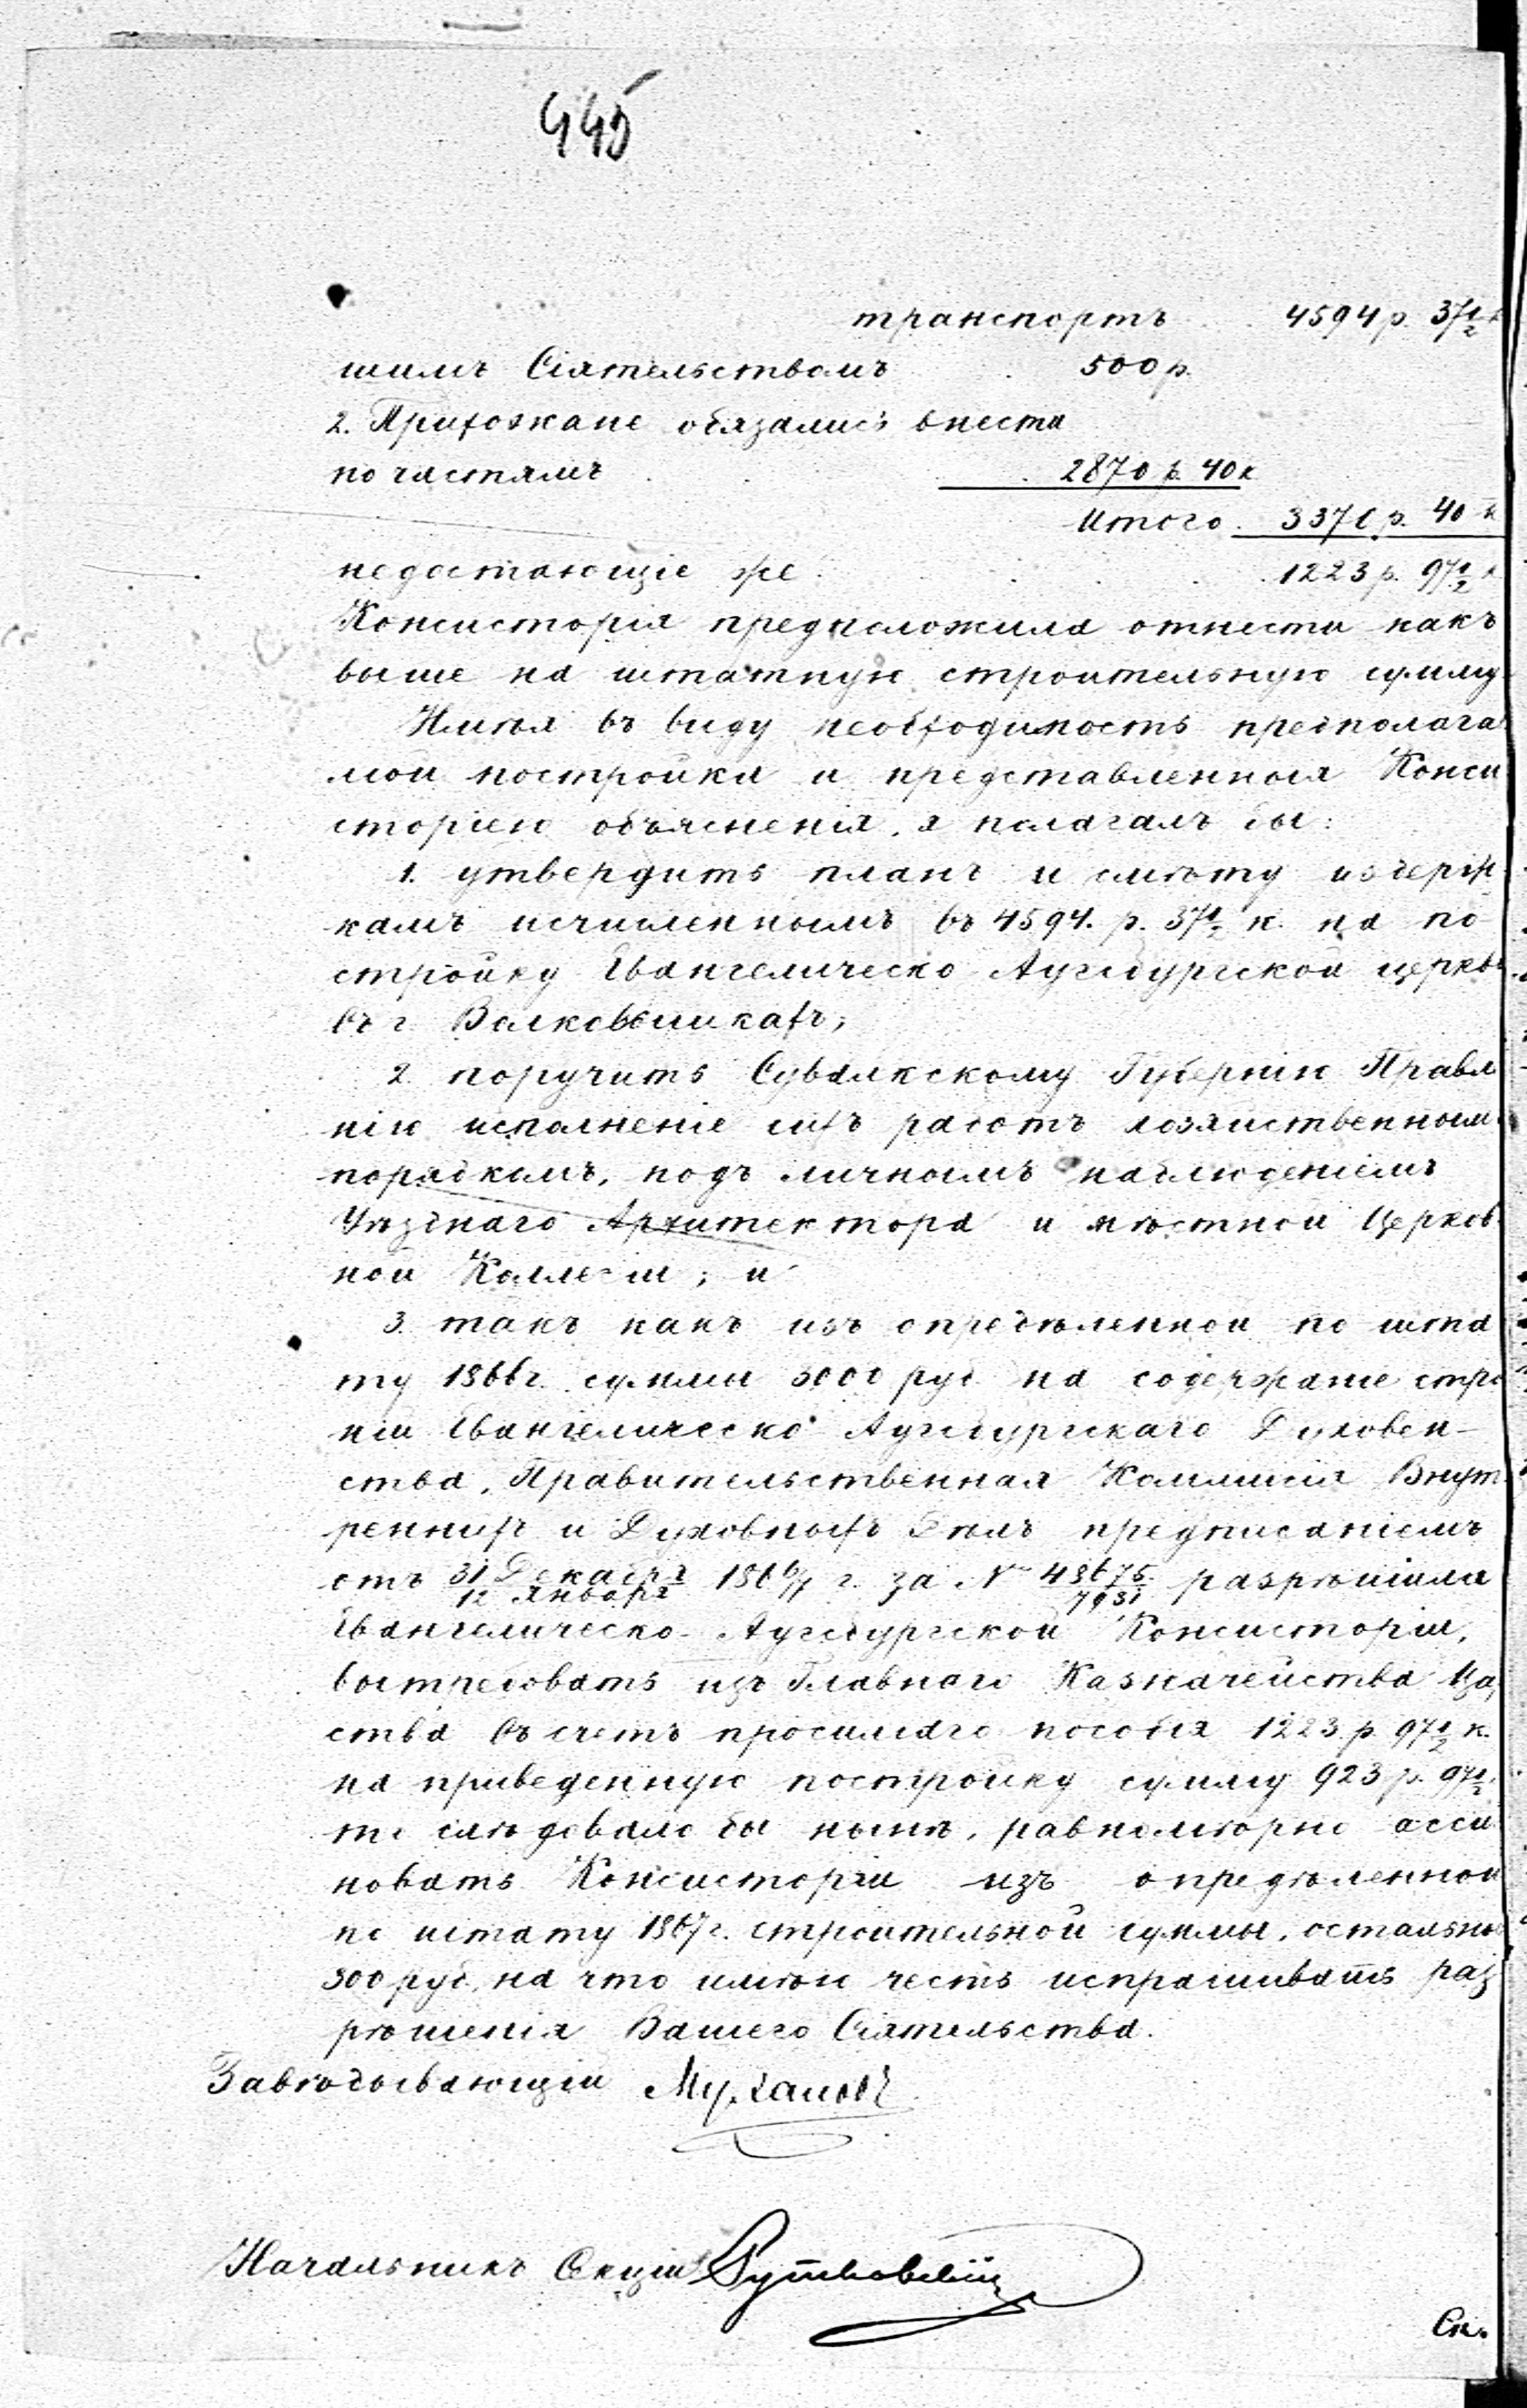 445
транспортъ 4594 р. 37½ к
шимъ Сіятельствомъ 500 р.
2. Прихожане обязались внести
по частямъ 2870 р. 40 к
Итого. 3370 р. 40 к
недостающіе же 1223 р. 97½ к
Консисторія предположила отнести какъ
выше на штатную строительную сумму
Имѣя въ виду необходимость предполага
мой постройки и представленныя Конси
сторіею объясненія, я полагалъ бы:
1. утвердить планъ и смѣту издерж
камъ исчисленнымъ въ 4594. р. 37½ к. на по
стройку Евангелическо-Аугсбургской церкв
въ г Волковышкахъ;
2. поручить Сувалкскому Губернію Правле
нію исполненіе сихъ работъ хозяйственнымъ
порядкомъ, подъ личнымъ наблюденіемъ
Уѣзднаго Архитектора и мѣстной Церков
ной Коллегіи; и
3. такъ какъ изъ опредѣленной по шта
ту 1866 г. суммы 3000 руб на содержаніе строе
ній Евангелическо Аугсбургскаго Духовен-
ства, Правительственная Коммисія Внут
реннихъ и Духовныхъ Дѣлъ предписаніемъ
отъ 31 Декабря/12 Января 1866/7 г. за № 48675/7931 разрѣшила
Евангелическо-Аугсбургской Консисторіи,
вытребовать изъ Главнаго Казначейства Ца
ства въ счетъ просимаго пособія 1223 р. 97½ к.
на приведенную постройку сумму 923 р. 97½
то слѣдовало бы нынѣ, равномѣрно асси
новать Консисторіи изъ опредѣленной
по штату 1867 г. строительной суммы, остальные
300 руб. на что имѣю честь испрашивать раз
рѣшенія Вашего Сіятельства.
Завѣдывающій Мухановъ
Начальникъ Секціи Рутковскій
Ск.